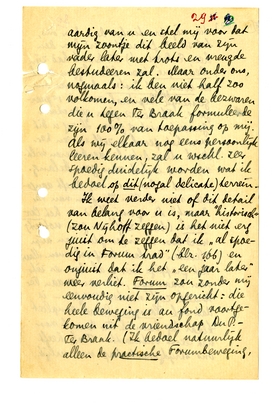 29
aardig van u en stel mij voor dat
mijn zoontje dit beeld van zijn
vader later met trots en vreugde
bestudeeren zal. Maar onder ons,
nogmaals: ik ben niet half zoo
volkomen, en vele van de bezwaren
die u tegen Ter Braak formuleerde
zijn 100% van toepassing op mij.
Als wij elkaar nog eens persoonlijk
leeren kennen, zal u wschl. zeer
spoedig duidelijk worden wat ik
bedoel op dit (nogal delicate) terrein.
Ik weet verder niet of dit detail
van belang voor u is, maar "historisch"
(zou Nijhoff zeggen) is het niet erg
juist om te zeggen dat ik "al spoe-
dig in Forum trad" (blz. 166) en
onjuist dat ik het "een jaar later
weer verliet. Forum zou zonder mij
eenvoudig niet zijn opgericht: die
heele beweging is au fond voortge-
komen uit de vriendschap DuP.-
Ter Braak. (Ik bedoel natuurlijk
alleen de practische Forumbeweging,